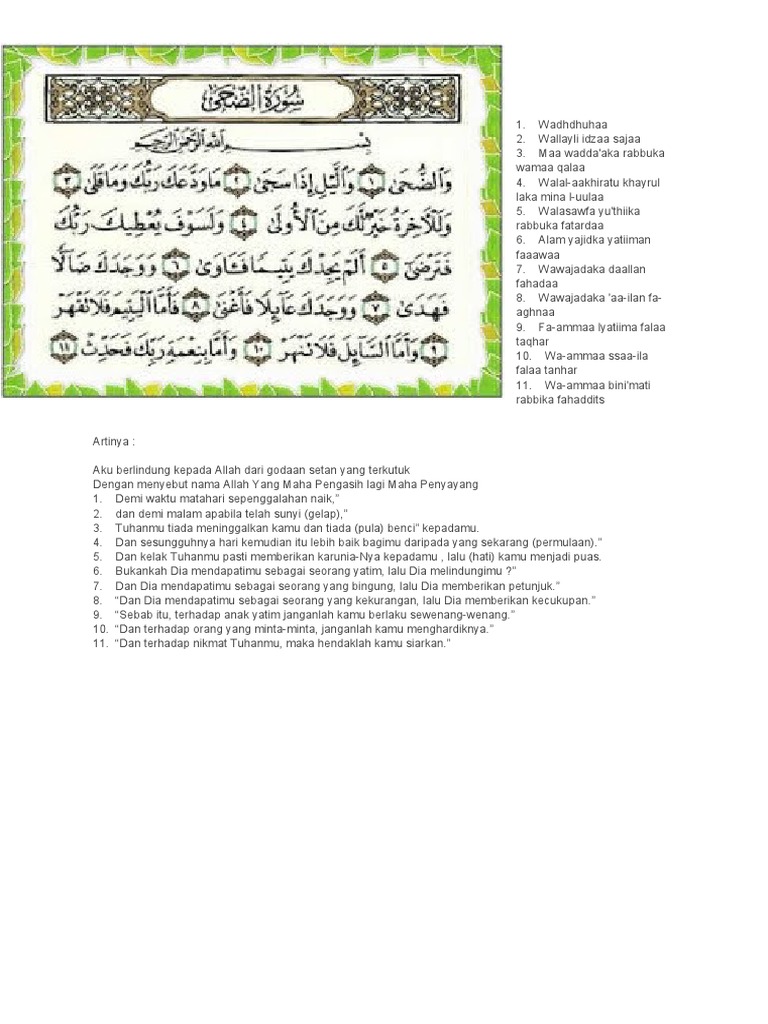 سورة الضحى
بسم الله الرحمن الرحيم
وَالضُّحَىٰ ١ وَالَّيْلِ إِذَا سَجَىٰ ٢ مَا وَدَّعَكَ رَبُّكَ وَمَا قَلَىٰ ٣
وَلَلْآخِرَةُ خَيْرٌ لَّكَ مِنَ الْأُولَىٰ ٤ وَلَسَوْفَ يُعْطِيكَ رَبُّكَ
فَتَرْضَىٰ ٥ أَلَمْ يَجِدْكَ يَتِيمًا فَـَٔاوَىٰ ٦ وَوَجَدَكَ ضَالًّا
فَهَدَىٰ ٧ وَوَجَدَكَ عَآئِلًا فَأَغْنَىٰ ٨ فَأَمَّا الْيَتِيمَ فَلَا تَقْهَرْ
٩ وَأَمَّا السَّآئِلَ فَلَا تَنْهَرْ ١٠ وَأَمَّا بِنِعْمَةِ رَبِّكَ فَحَدِّثْ ١١
1. Wadhdhuhaa
2. Wallayli idzaa sajaa
3. Maa wadda'aka rabbuka
wamaa qalaa
4. Walal-aakhiratu khayrul
laka mina l-uulaa
5. Walasawfa yu'thiika
rabbuka fatardaa
6. Alam yajidka yatiiman
faaawaa
7. Wawajadaka daallan
fahadaa
8. Wawajadaka 'aa-ilan fa-
aghnaa
9. Fa-ammaa lyatiima falaa
taqhar
10. Wa-ammaa ssaa-ila
falaa tanhar
11. Wa-ammaa bini'mati
rabbika fahaddits
Artinya :
Aku berlindung kepada Allah dari godaan setan yang terkutuk
Dengan menyebut nama Allah Yang Maha Pengasih lagi Maha Penyayang
1. Demi waktu matahari sepenggalahan naik,"
2. dan demi malam apabila telah sunyi (gelap),"
3. Tuhanmu tiada meninggalkan kamu dan tiada (pula) benci" kepadamu.
4. Dan sesungguhnya hari kemudian itu lebih baik bagimu daripada yang sekarang (permulaan)."
5. Dan kelak Tuhanmu pasti memberikan karunia-Nya kepadamu , lalu (hati) kamu menjadi puas.
6. Bukankah Dia mendapatimu sebagai seorang yatim, lalu Dia melindungimu ?"
7. Dan Dia mendapatimu sebagai seorang yang bingung, lalu Dia memberikan petunjuk."
8. "Dan Dia mendapatimu sebagai seorang yang kekurangan, lalu Dia memberikan kecukupan."
9. "Sebab itu, terhadap anak yatim janganlah kamu berlaku sewenang-wenang."
10. "Dan terhadap orang yang minta-minta, janganlah kamu menghardiknya."
11. "Dan terhadap nikmat Tuhanmu, maka hendaklah kamu siarkan."